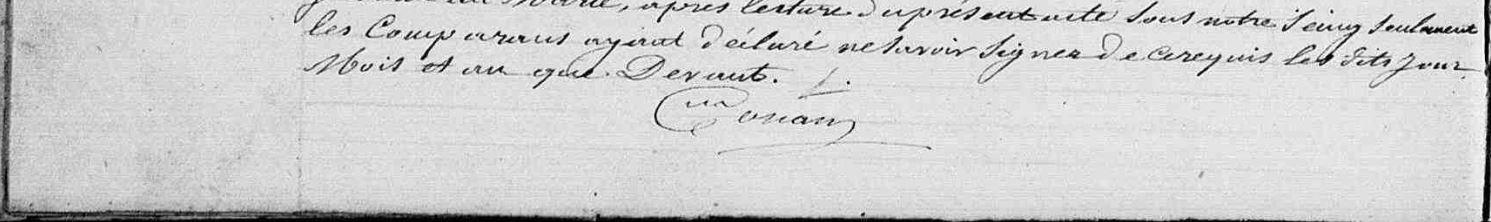 Marie, après lecture du présent acte sous notre seing seulement
les Comparans ayant déclaré ne savoir signer de ce requis les dits jour
Mois et an que Devant.